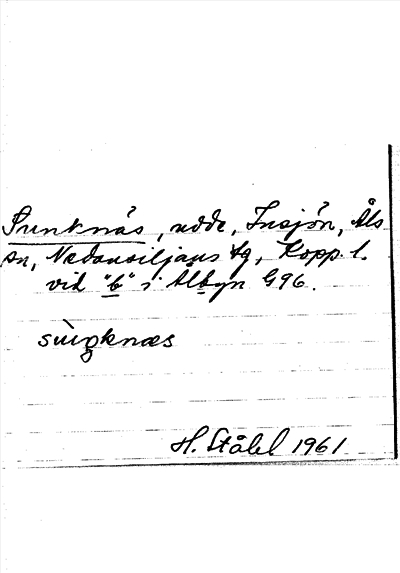 Sunknäs, udde, Insjön, Åls
sn, Nedansiljans tg, Kopp. l.
vid "b" i Ålbyn G96.
sùŋknæs
H. Ståhl 1961